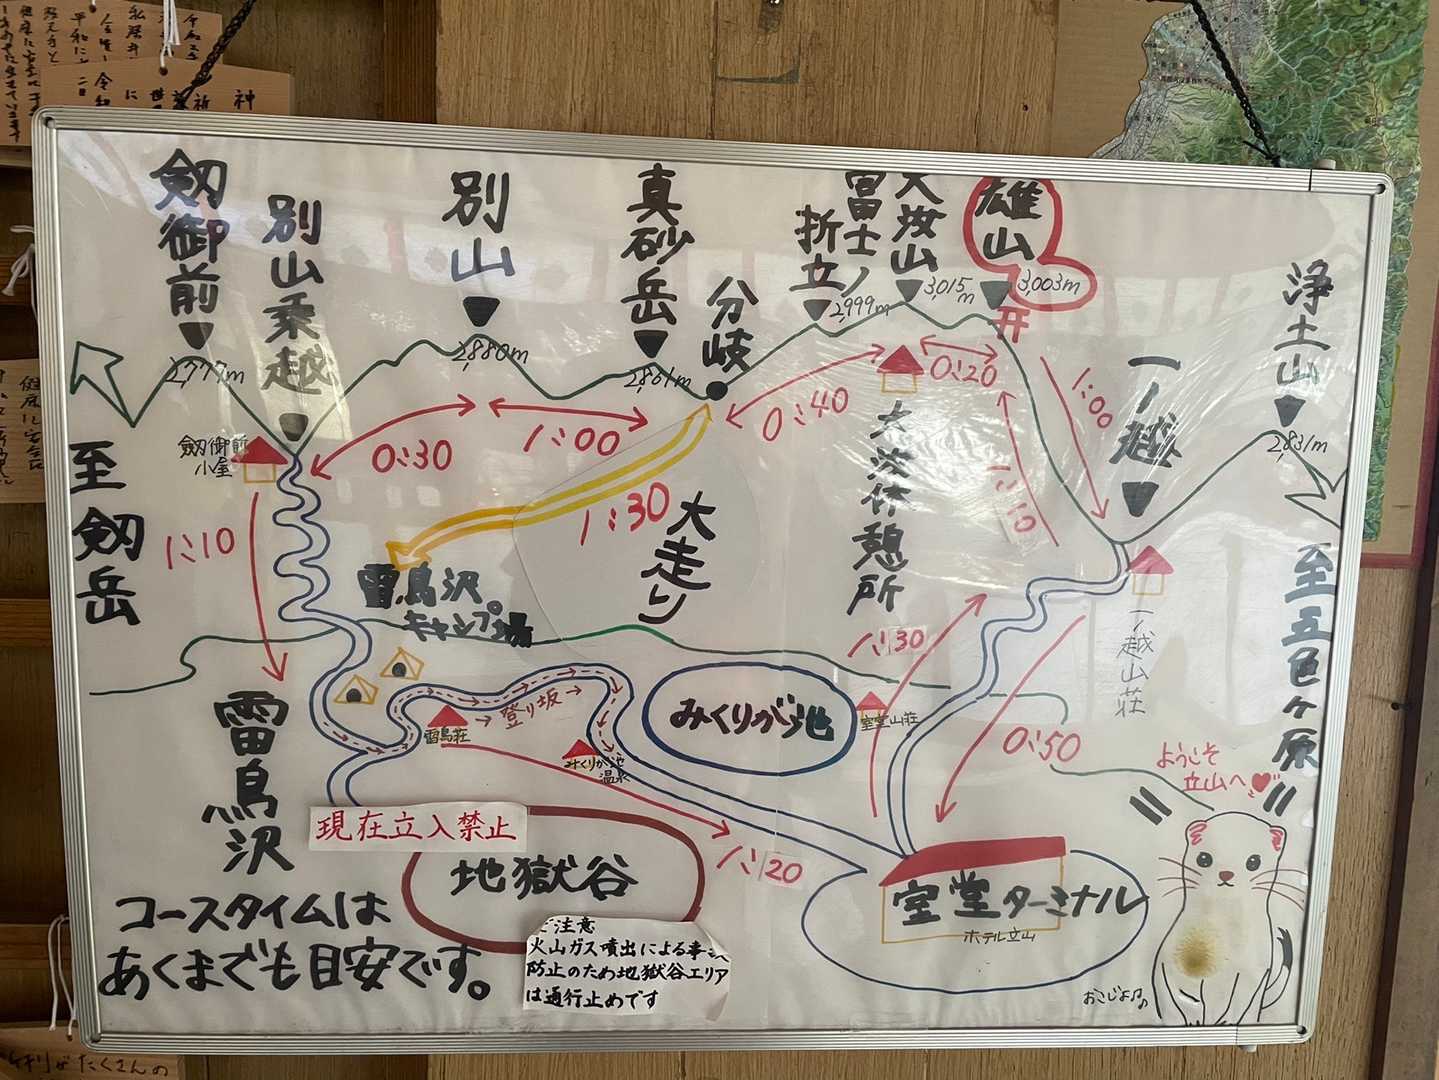 剱御前
別山乗越
別山
真砂岳
分岐
富士ノ
折立
大汝山
雄山
浄土山
一ノ越
2,777m
2,880m
2,861m
2,999m
3,015m
3,003m
2,831m
至剱岳
剱御前
小屋
0:30
1:00
0:40
0:20
1:00
1:10
1:10
1:30
大走り
大汝休憩所
雷鳥沢
キャンプ場
一ノ越山荘
至五色ヶ原
1:30
室堂山荘
0:50
みくりが池
雷鳥荘
→登り坂→
みくりが池
温泉
雷鳥沢
1:20
現在立入禁止
地獄谷
ご注意
火山ガス噴出による事故
防止のため地獄谷エリア
は通行止めです
室堂ターミナル
ホテル立山
ようこそ
立山へ
おこじょ
コースタイムは
あくまでも目安です。
神
たくさんの